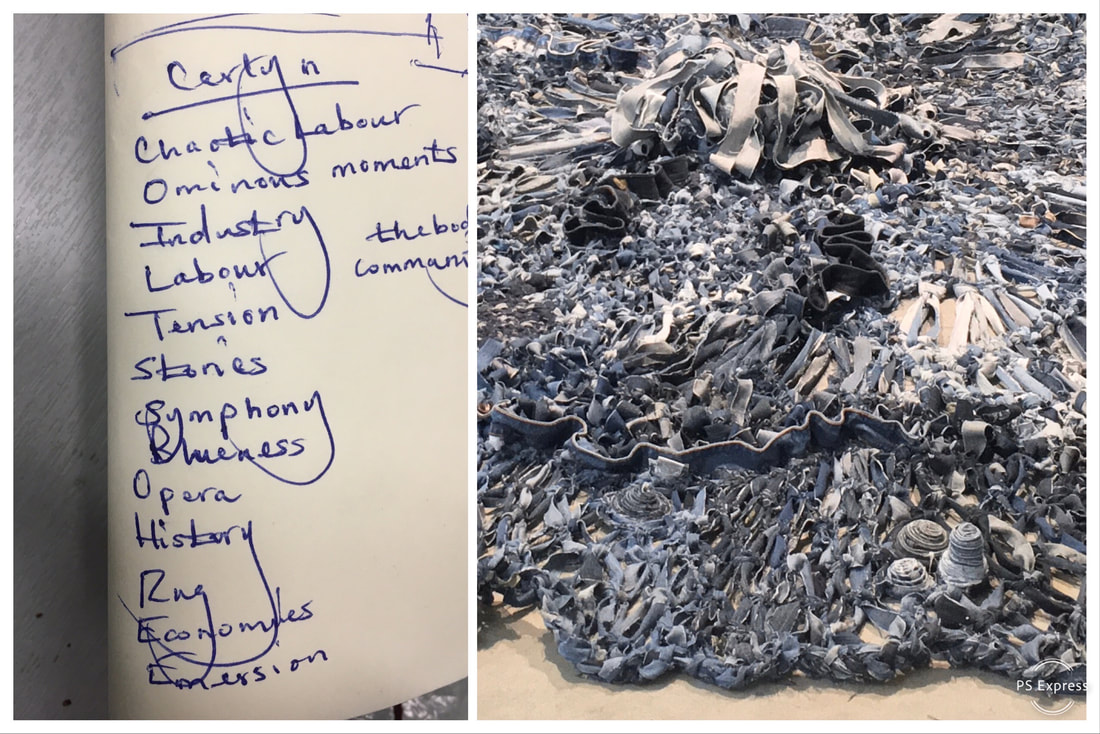 Chaotic Labour
Ominous moments
Industry
Labour
Tension
Stories
Symphony
Blueness
Opera
History
Rug
Economies
Emersion
the bod
communi
PS Express